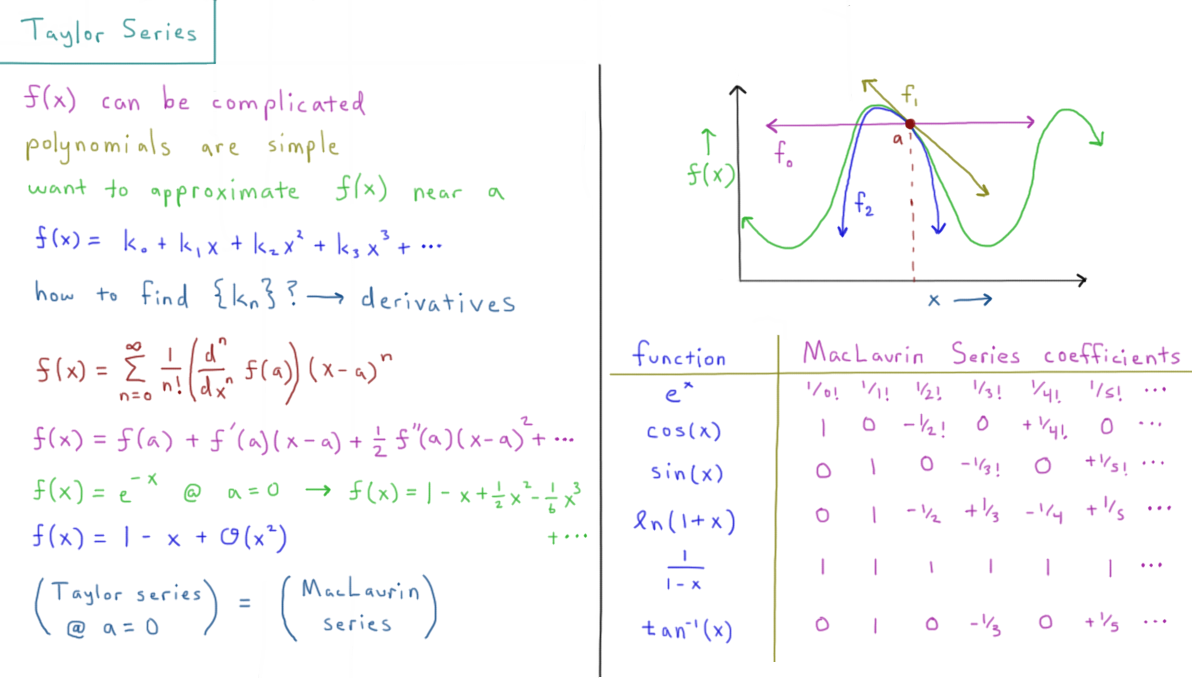 Taylor Series
f(x) can be complicated
polynomials are simple
want to approximate f(x) near a
f(x) = k₀ + k₁x + k₂x² + k₃x³ + ⋯
how to find {kₙ}? → derivatives
f(x) = ∑_{n=0}^{∞} 1/n! (dⁿ/dxⁿ f(a)) (x-a)ⁿ
f(x) = f(a) + f'(a)(x-a) + ½ f''(a)(x-a)² + ⋯
f(x) = e⁻ˣ @ a=0 → f(x) = 1 - x + ½x² - 1/6 x³
+ ⋯
f(x) = 1 - x + O(x²)
(Taylor series @ a=0) = (MacLaurin series)
f₁
a
f₀
↑
f(x)
f₂
x →
function MacLaurin Series coefficients
eˣ 1/0! 1/1! 1/2! 1/3! 1/4! 1/5! ⋯
cos(x) 1 0 -1/2! 0 +1/4! 0 ⋯
sin(x) 0 1 0 -1/3! 0 +1/5! ⋯
ln(1+x) 0 1 -1/2 +1/3 -1/4 +1/5 ⋯
1/(1-x) 1 1 1 1 1 1 ⋯
tan⁻¹(x) 0 1 0 -1/3 0 +1/5 ⋯